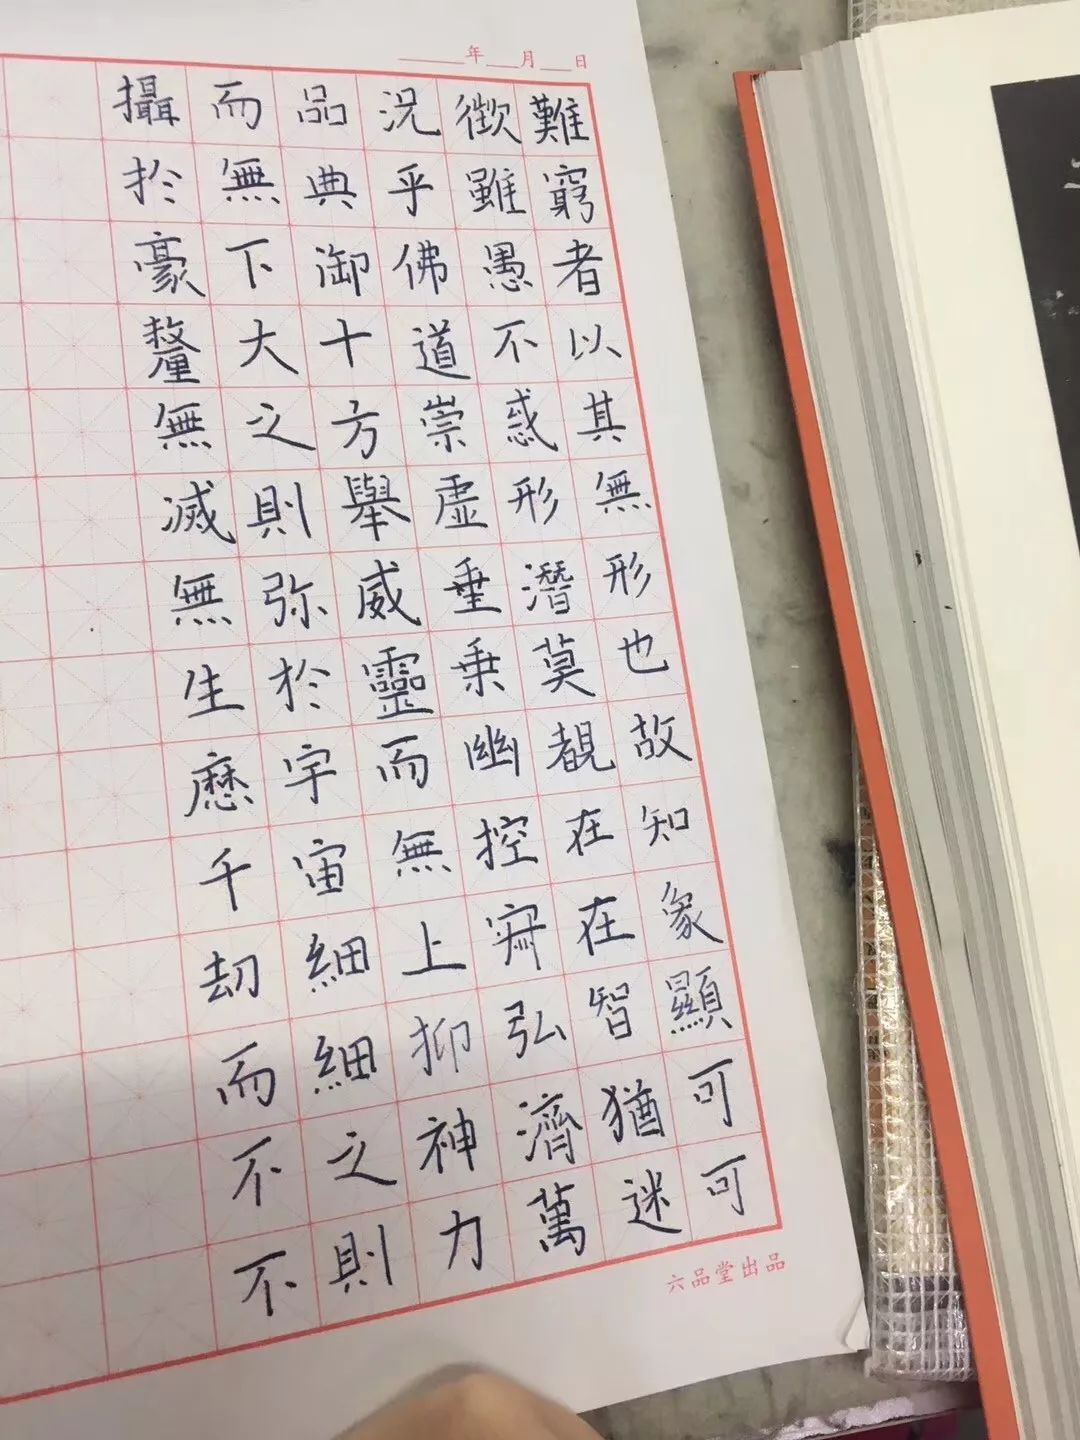 年 月 日
難窮者以其無形也故知象顯可可
徵雖愚不惑形潛莫覩在在智猶迷
況乎佛道崇虚垂乗幽控寂弘濟萬
品典御十方舉威靈而無上抑神力
而無下大之則弥於宇宙細細之則
攝於豪釐無滅無生歷千劫而不不
六品堂出品